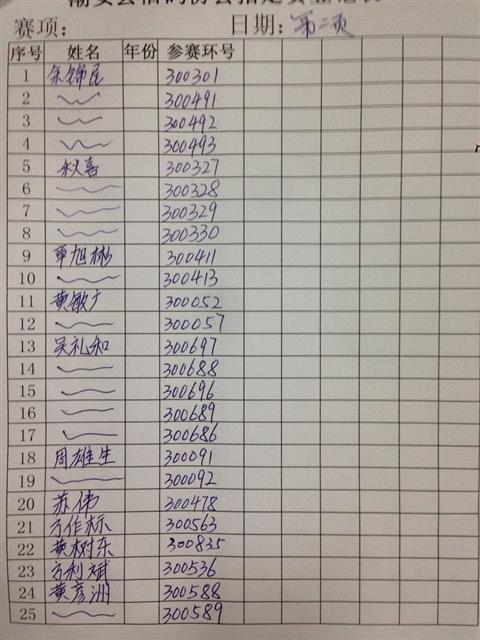 赛项: 日期: 第二页
序号 姓名 年份 参赛环号
1 余锦居 300301
2 300491
3 300492
4 300493
5 秋喜 300327
6 300328
7 300329
8 300330
9 章旭彬 300411
10 300413
11 黄敏广 300052
12 300057
13 吴礼和 300697
14 300688
15 300696
16 300689
17 300686
18 周雄生 300091
19 300092
20 苏伟 300478
21 方作标 300563
22 黄树东 300835
23 方利斌 300536
24 黄彦洲 300588
25 300589